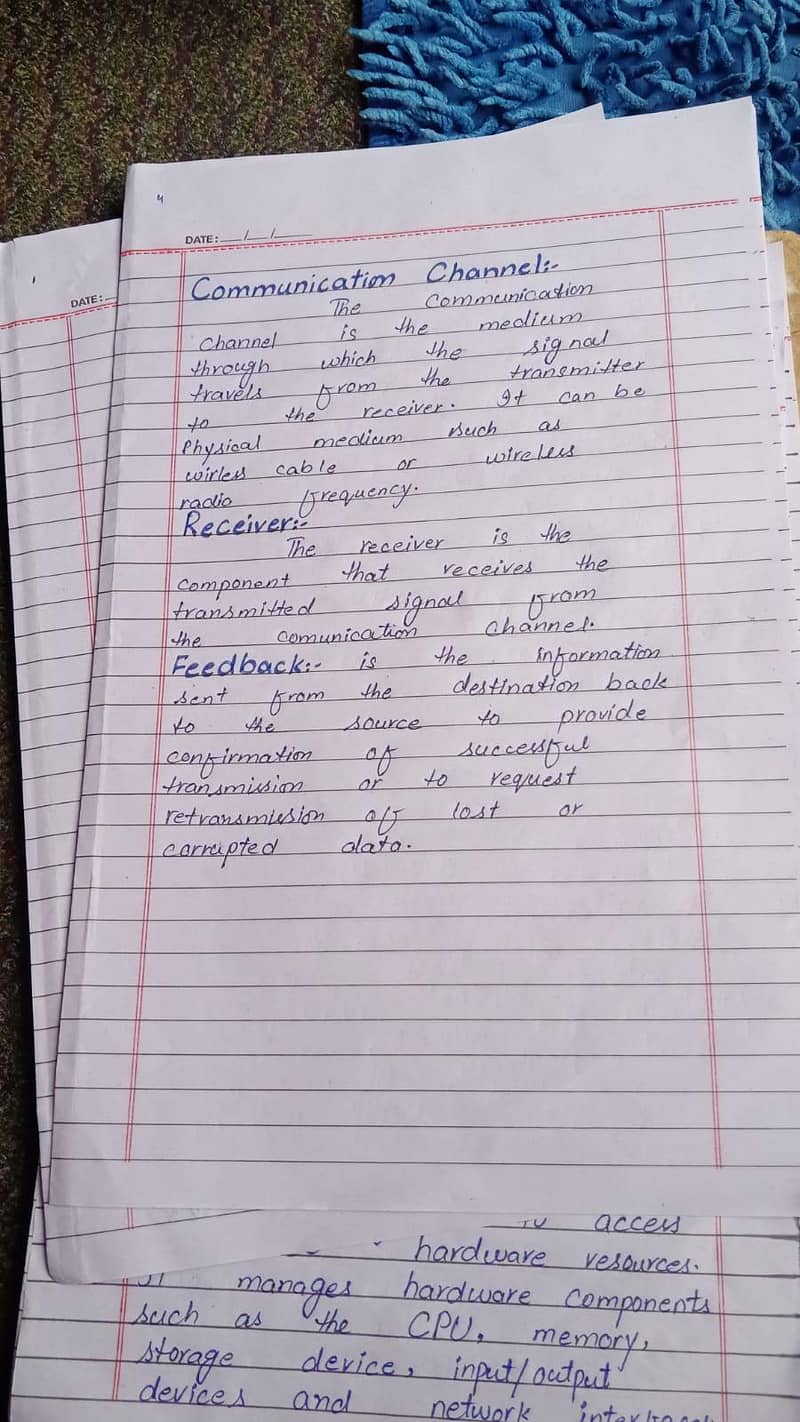 4
DATE: __/__/____
Communication Channel:-
The Communication
Channel is the medium
through which the signal
travels from the transmitter
to the receiver. It can be
Physical medium such as
wirless cable or wireless
radio frequency.
Receiver:-
The receiver is the
component that receives the
transmitted signal from
the comunication channel.
Feedback:- is the information
sent from the destination back
to the source to provide
confirmation of successful
transmission or to request
retransmission off lost or
corrupted data.
DATE:
access
hardware resources.
manages hardware components
such as the CPU, memory,
storage device, input/output
devices and network